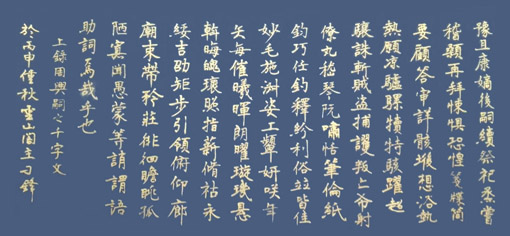 豫且康嫡後嗣續祭祀蒸嘗
稽顙再拜悚懼恐惶箋牒簡
要顧答審詳骸垢想浴執
熱願涼驢騾犢特駭躍超
驤誅斬賊盗捕獲叛亡布射
僚丸嵇琴阮嘯恬筆倫紙
鈞巧任釣釋紛利俗竝皆佳
妙毛施淑姿工顰妍咲年
矢每催曦暉朗曜璇璣懸
斡晦魄環照指薪脩祜永
綏吉劭矩步引領俯仰廊
廟束帶矜莊徘徊瞻眺孤
陋寡聞愚蒙等誚謂語
助詞焉哉乎也
上録周興嗣之千字文
於丙申仲秋雲山閣主刁鋒